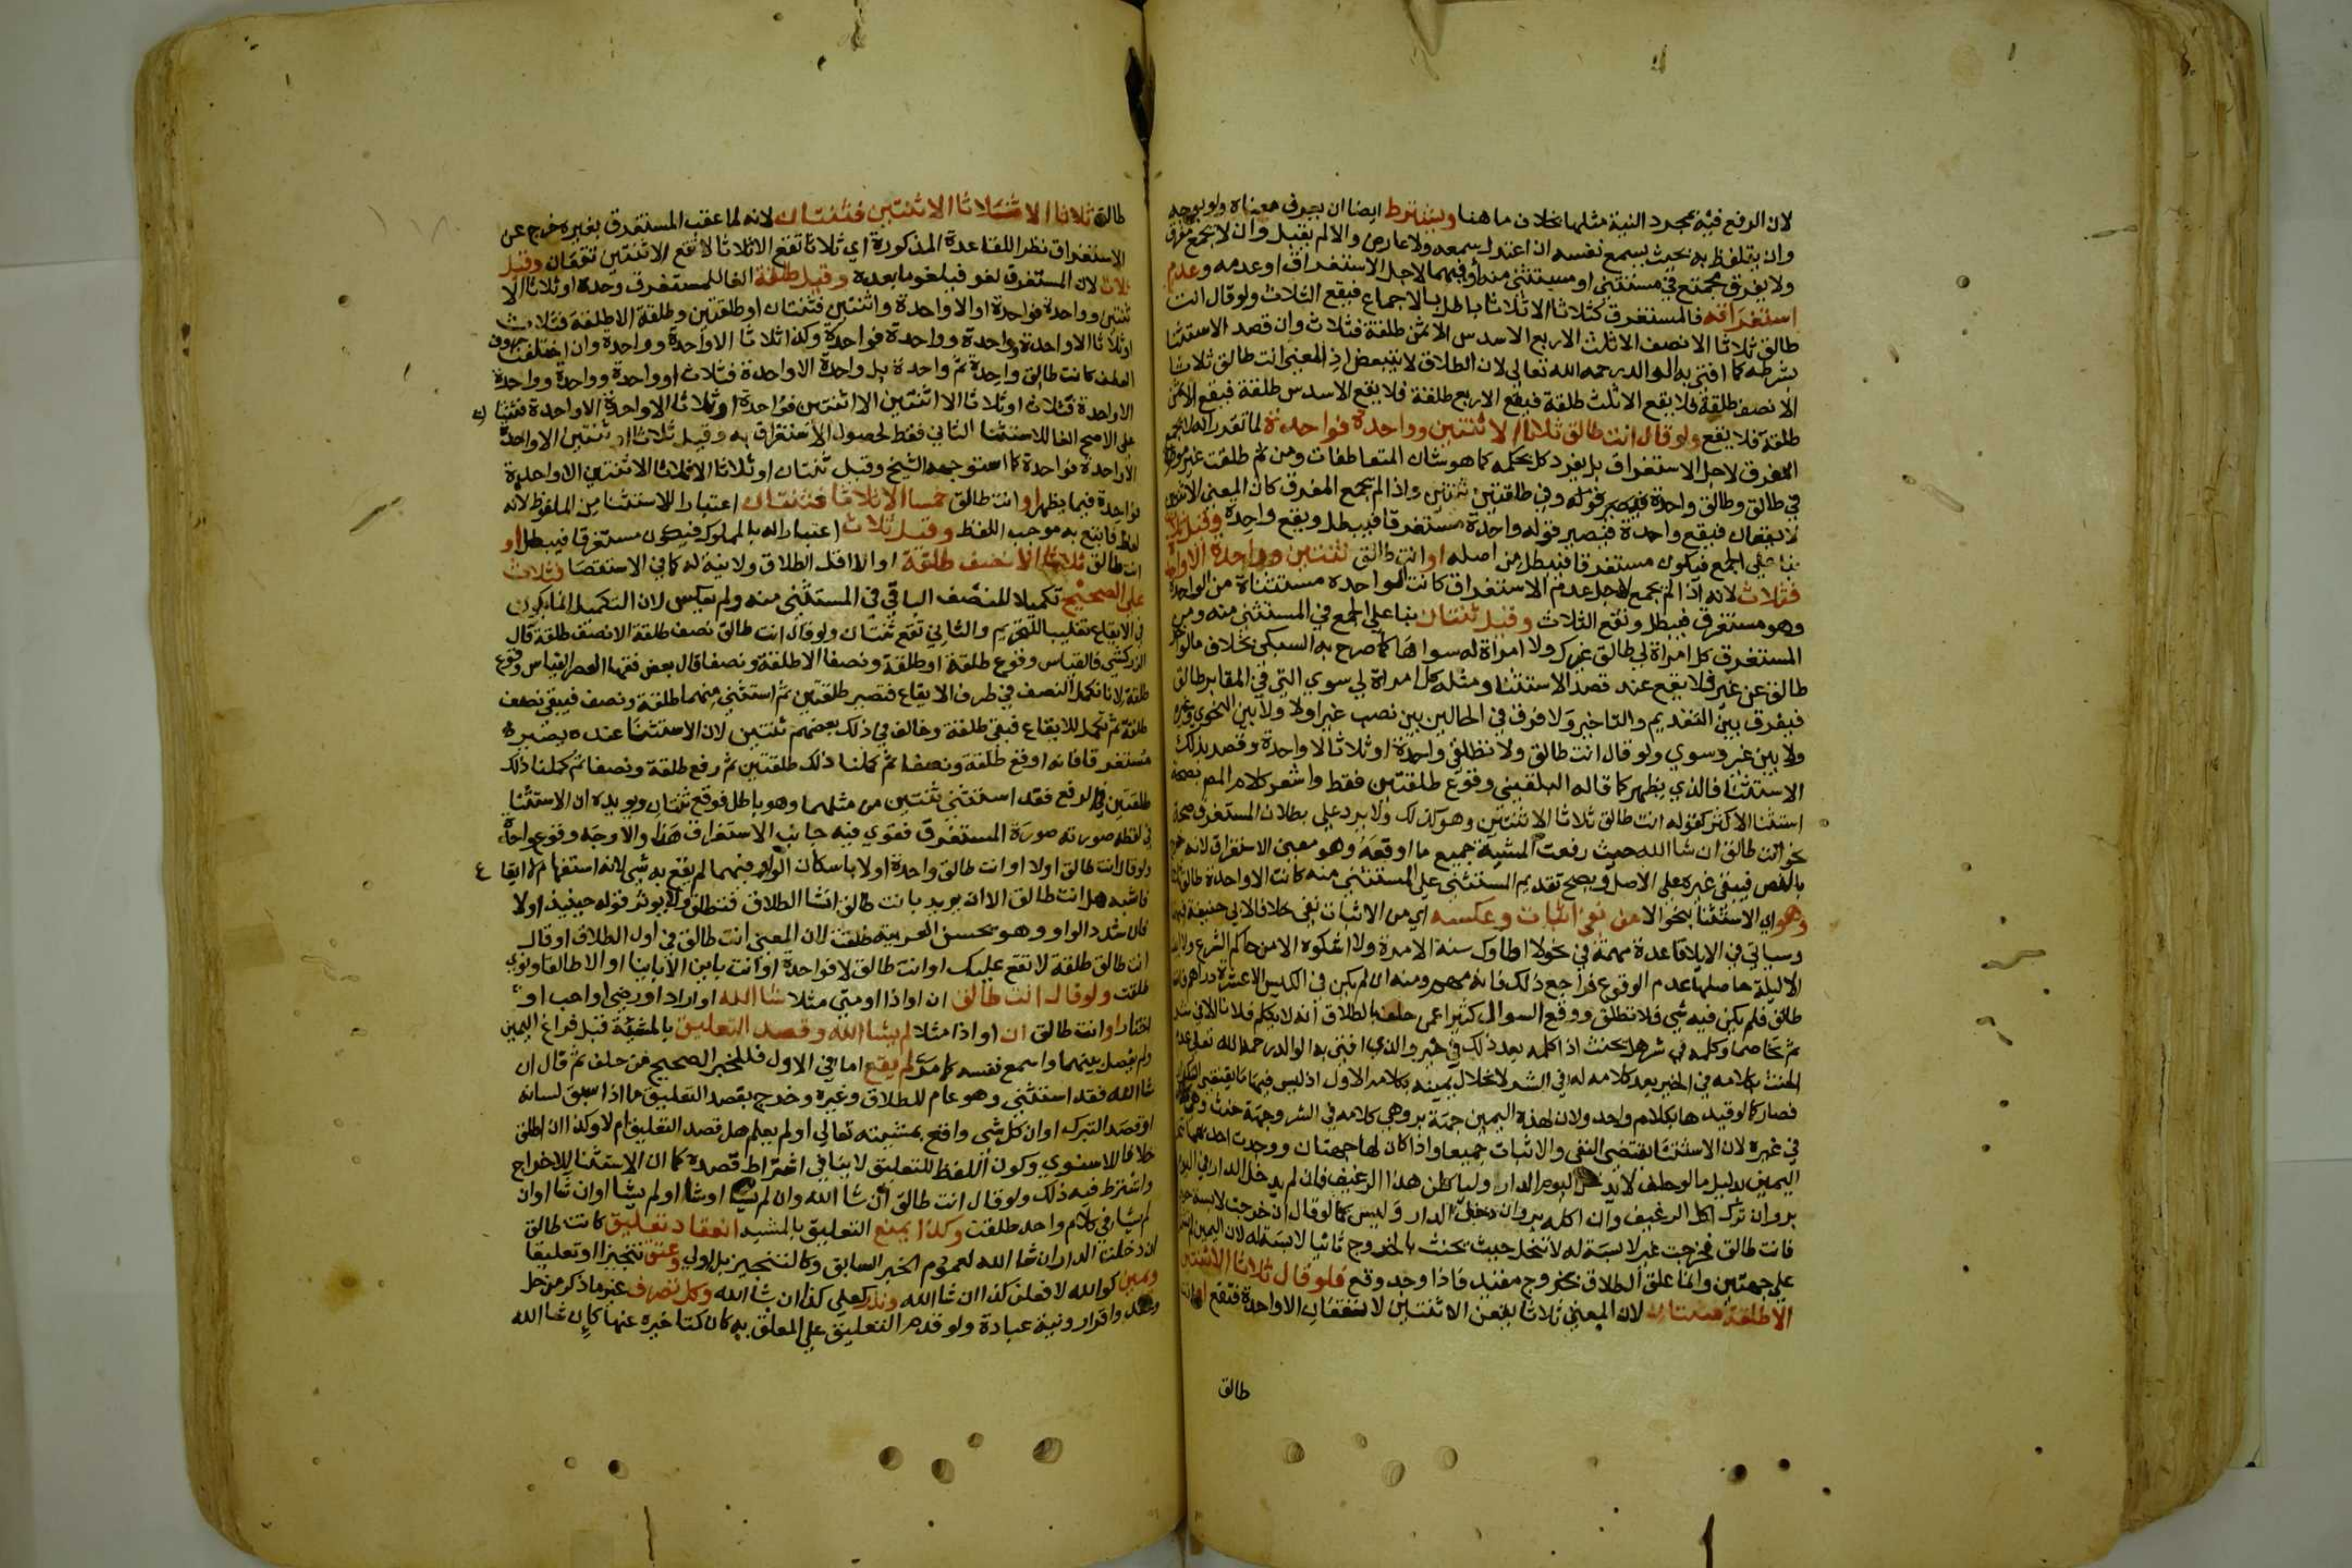 لان الرفع فيه بمجرد النية مثلها بخلاف ما هنا ويشترط ايضا ان يعرف معناه ولو بوجه
وان يتلفظ به بحيث يسمع نفسه ان اعتدل سمعه ولا عارض والا لم يقبل وان لا يجمع مفرق
ولا يفرق مجتمع في مستثنى او مستثنى منه او فيهما لاجل الاستغراق او عدمه وعدم
استغراقه فالمستغرق كثلاثا الا ثلاثا باطل بالاجماع فيقع الثلاث ولو قال انت
طالق ثلاثا الا نصف الا ثلث الا ربع الا سدس الا ثمن طلقة فثلاث وان قصد الاستثنا
بشرطه كما افتى به الوالد رحمه الله تعالى لان الطلاق لا يتبعض اذ المعنى انت طالق ثلاثا
الا نصف طلقة فلا يقع الا ثلث طلقة فيقع الا ربع طلقة فلا يقع الا سدس طلقة فيقع الا ثمن
طلقة فلا يقع ولو قال انت طالق ثلاثا الا ثنتين وواحدة فواحدة لما تقرر انه لا يجمع
المفرق لاجل الاستغراق بل يفرد كل بحكمه كما هو شان المتعاطفات ومن ثم طلقت غير موطوة
في طالق وطالق واحدة وفي طلقتين ثنتين واذا لم يجمع المفرق كان المعنى الا ثنتين
لا تقعان فيقع واحدة فيصير قوله وواحدة مستغرقا فيبطل ويقع واحدة وقيل ثلاث
بنا على الجمع فيكون مستغرقا فيبطل من اصله او انت طالق ثنتين وواحدة الا واحدة
فثلاث لانه اذا لم يجمع لاجل عدم الاستغراق كانت الواحدة مستثناة من الواحدة
وهو مستغرق فيبطل وتقع الثلاث وقيل ثنتان بنا على الجمع في المستثنى منه ومن
المستغرق كل امراة لي طالق غيرك ولا امراة له سواها كما صرح به السبكي بخلاف ما لو اخر
طالق عن غير فلا يقع عند قصد الاستثنا ومثله كل امراة لي سوي التي في المقابر طالق
فيفرق بين التقديم والتاخير ولا فرق في الحالين بين نصب غير او لا ولا بين النحوي وغيره
ولا بين غير وسوي ولو قال انت طالق ولا تطلقي واحدة او ثلاثا الا واحدة وقصد بذلك
الاستثنا فالذي يظهر كما قاله البلقيني وقوع طلقتين فقط واشعر كلام المص بصحة
استثنا الاكثر كقوله انت طالق ثلاثا الا ثنتين وهو كذلك ولا يرد على بطلان المستغرق صحة
نحو انت طالق ان شا الله حيث رفعت المشية جميع ما اوقعه وهو معنى الاستغراق لانه خرج
بالنص فيبقى غيره على الاصل ويصح تقديم المستثنى على المستثنى منه كانت الا واحدة طالق ثلاثا
وهو اي الاستثنا بنحو الا من نفي اثبات وعكسه اي من الاثبات نفي خلافا لابي حنيفة
وسياتي في الايلا قاعدة مهمة في نحو لا اطاوك سنة الا مرة ولا اشكوه الا من حاكم الشرع
الا ليلة حاصلها عدم الوقوع فراجع ذلك فانه مهم ومنه ان لم يكن في الكيس الا عشرة دراهم فانت
طالق فلم يكن فيه شي فلا تطلق ووقع السوال كثيرا عمن حلف بالطلاق انه لا يكلم فلانا الا في شر
ثم تخاصما وكلمه في شر هل يحنث اذا كلمه بعد ذلك في خير والذي افتى به الوالد رحمه الله تعالى عدم
الحنث بكلامه في الخير بعد كلامه له في الشر لانحلال يمينه بكلامه الاول اذ ليس فيها ما يقتضي التكرار
فصار كما لو قيدها بكلام واحد ولان لهذه اليمين جهة بر وهي كلامه في الشر وجهة حنث وهي كلامه
في غيره لان الاستثنا يقتضي النفي والاثبات جميعا واذا كان لها جهتان ووجدت احداهما
اليمين بدليل ما لو حلف لا يدخل اليوم الدار وليأكلن هذا الرغيف فان لم يدخل الدار في اليوم
بر وان ترك اكل الرغيف وان اكله بر وان دخل الدار وليس كما لو قال ان خرجت لابسة حرير
فانت طالق فخرجت غير لابسة له لا تنحل حيث يحنث بالخروج ثانيا لابسة له لان اليمين لم
على جهتين وانما علق الطلاق بخروج مقيد فاذا وجد وقع فلو قال ثلاثا الا ثنتين
الا طلقة فثنتان لان المعنى ثلاثا يقعن الا ثنتين لا تقعان الا واحدة فتقع
طالق
طالق ثلاثا الا ثلاثا الا ثنتين فثنتان لانه لما عقب المستغرق بغيره خرج عن
الاستغراق نظرا للقاعدة المذكورة اي ثلاثا تقع الا ثلاثا لا تقع الا ثنتين تقعان وقيل
ثلاث لان المستغرق لغو فيلغو ما بعده وقيل طلقة الغا للمستغرق وحده او ثلاثا الا
ثنتين وواحدة فواحدة او الا واحدة واثنتين فثنتان او طلقتين وطلقة الا طلقة فثلاث
او ثلاثا الا واحدة وواحدة وواحدة فواحدة وكذا ثلاثا الا واحدة وواحدة وان اختلفت حروف
العطف كانت طالق واحدة ثم واحدة بل واحدة الا واحدة فثلاث او وواحدة وواحدة وواحدة
الا واحدة فثلاث او ثلاثا الا اثنتين الا اثنتين فواحدة او ثلاثا الا واحدة الا واحدة فثنتان
على الاصح الغا للاستثنا الثاني فقط لحصول الاستغراق به وقيل ثلاث او ثنتين الا واحدة
الا واحدة فواحدة كما استوجهه الشيخ وقيل ثنتان او ثلاثا الا ثلاثا الا ثنتين الا واحدة
فواحدة فيما يظهر او انت طالق خمسا الا ثلاثا فثنتان اعتبارا للاستثنا من الملفوظ لانه
لفظ فاتبع به موجب اللفظ وقيل ثلاث اعتبارا له بالمملوك فيكون مستغرقا فيبطل او
انت طالق ثلاثا الا نصف طلقة او الا اقل الطلاق ولا نية له كما في الاستقصا فثلاث
على الصحيح تكميلا للنصف الباقي في المستثنى منه ولم يعكس لان التكميل انما يكون
في الايقاع تغليبا للتحريم والثاني تقع ثنتان ولو قال انت طالق نصف طلقة الا نصف طلقة قال
الزركشي فالقياس وقوع طلقة او طلقة ونصفا الا طلقة ونصفا قال بعض فقها العصر القياس وقوع
طلقة لانا نكمل النصف في طرف الايقاع فتصير طلقتين ثم استثنى منهما طلقة ونصف فيبقى نصف
طلقة ثم تكمل للايقاع فبقي طلقة وخالف في ذلك بعضهم ثنتين لان الاستثنا عنده يصيره
مستغرقا فانه اوقع طلقة ونصفا ثم كملنا ذلك طلقتين ثم رفع طلقة ونصفا ثم كملنا ذلك
طلقتين في الرفع فقد استثنى ثنتين من مثلهما وهو باطل فوقع ثنتان ويويده ان الاستثنا
في لفظه صورته صورة المستغرق فقوي فيه جانب الاستغراق هذا والاوجه وقوع واحدة
ولو قال انت طالق اولا او انت طالق واحدة اولا باسكان الواو فيهما لم يقع به شي لانه استفهام لا ايقا ع
فاشبه هل انت طالق الا ان يريد بانت طالق انشا الطلاق فتطلق ولا يوثر قوله حينيذ اولا
فان شدد الواو وهو يحسن العربية طلقت لان المعنى انت طالق في اول الطلاق او قال
انت طالق طلقة لا تقع عليك او انت طالق لا فواحدة او انت باين الا باينا او الا طالقا ونوي
طلقت ولو قال انت طالق ان او اذا او متى مثلا شا الله او اراد او رضي او احب او
اختار او انت طالق ان او اذا مثلا لم يشا الله وقصد التعليق بالمشية قبل فراغ اليمين
ولم يفصل بينهما واسمع نفسه كما مر لم يقع اما في الاول فللخبر الصحيح من حلف ثم قال ان
شا الله فقد استثنى وهو عام للطلاق وغيره وخرج بقصد التعليق ما اذا سبق لسانه
او قصد التبرك او ان كل شي واقع بمشيته تعالى او لم يعلم هل قصد التعليق ام لا وكذا ان اطلق
خلافا للاسنوي وكون اللفظ للتعليق لا ينافي اشتراط قصده كما ان الاستثنا للاخراج
واشترط فيه ذلك ولو قال انت طالق ان شا الله وان لم يشا او شا او لم يشا او ان شا او ان
لم يشا في كلام واحد طلقت وكذا يمنع التعليق بالمشية انعقاد تعليق كانت طالق
ان دخلت الدار ان شا الله لعموم الخبر السابق وكالتنجيز بل اولى وعتق تنجيزا او تعليقا
ويمين كوالله لافعلن كذا ان شا الله ونذر كعلي كذا ان شا الله وكل تصرف غير ما ذكر من حل
وعقد واقرار ونية عبادة ولو قدم التعليق على المعلق به كان كتاخيره عنها كان شا الله